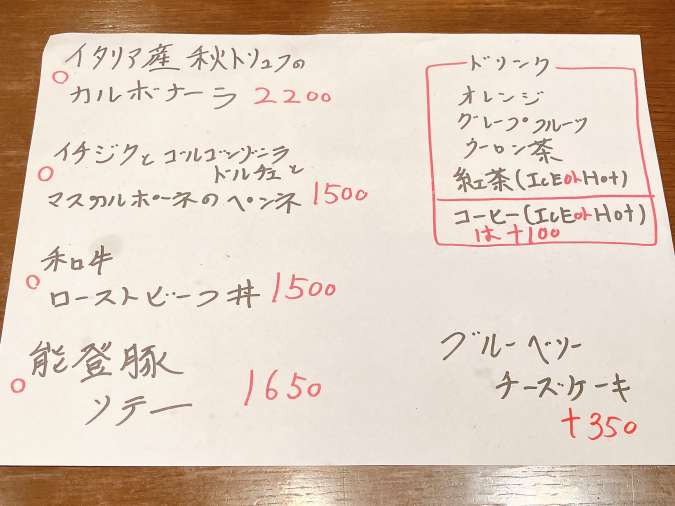 イタリア産 秋トリュフの
カルボナーラ 2200
イチジクと ゴルゴンゾーラ
ドルチェと
マスカルポーネの ペンネ 1500
和牛
ローストビーフ丼 1500
能登豚
ソテー 1650
ドリンク
オレンジ
グレープフルーツ
ウーロン茶
紅茶(IcE or Hot)
コーヒー(IcE or Hot)
は +100
ブルーベリー
チーズケーキ
+350